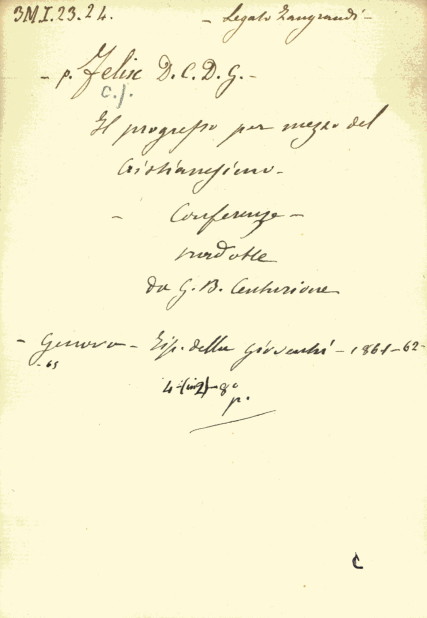 3M.I.23.24.
- Legato Zangrandi -
- p. Felix D. C. D. G. -
C. J.
Il progresso per mezzo del
Cristianesimo -
- Conferenze -
tradotte
da G. B. Centurione
- Genova - Tip. della Gioventù - 1861-62-
-65
4 (in 2) - 8°
p.
C